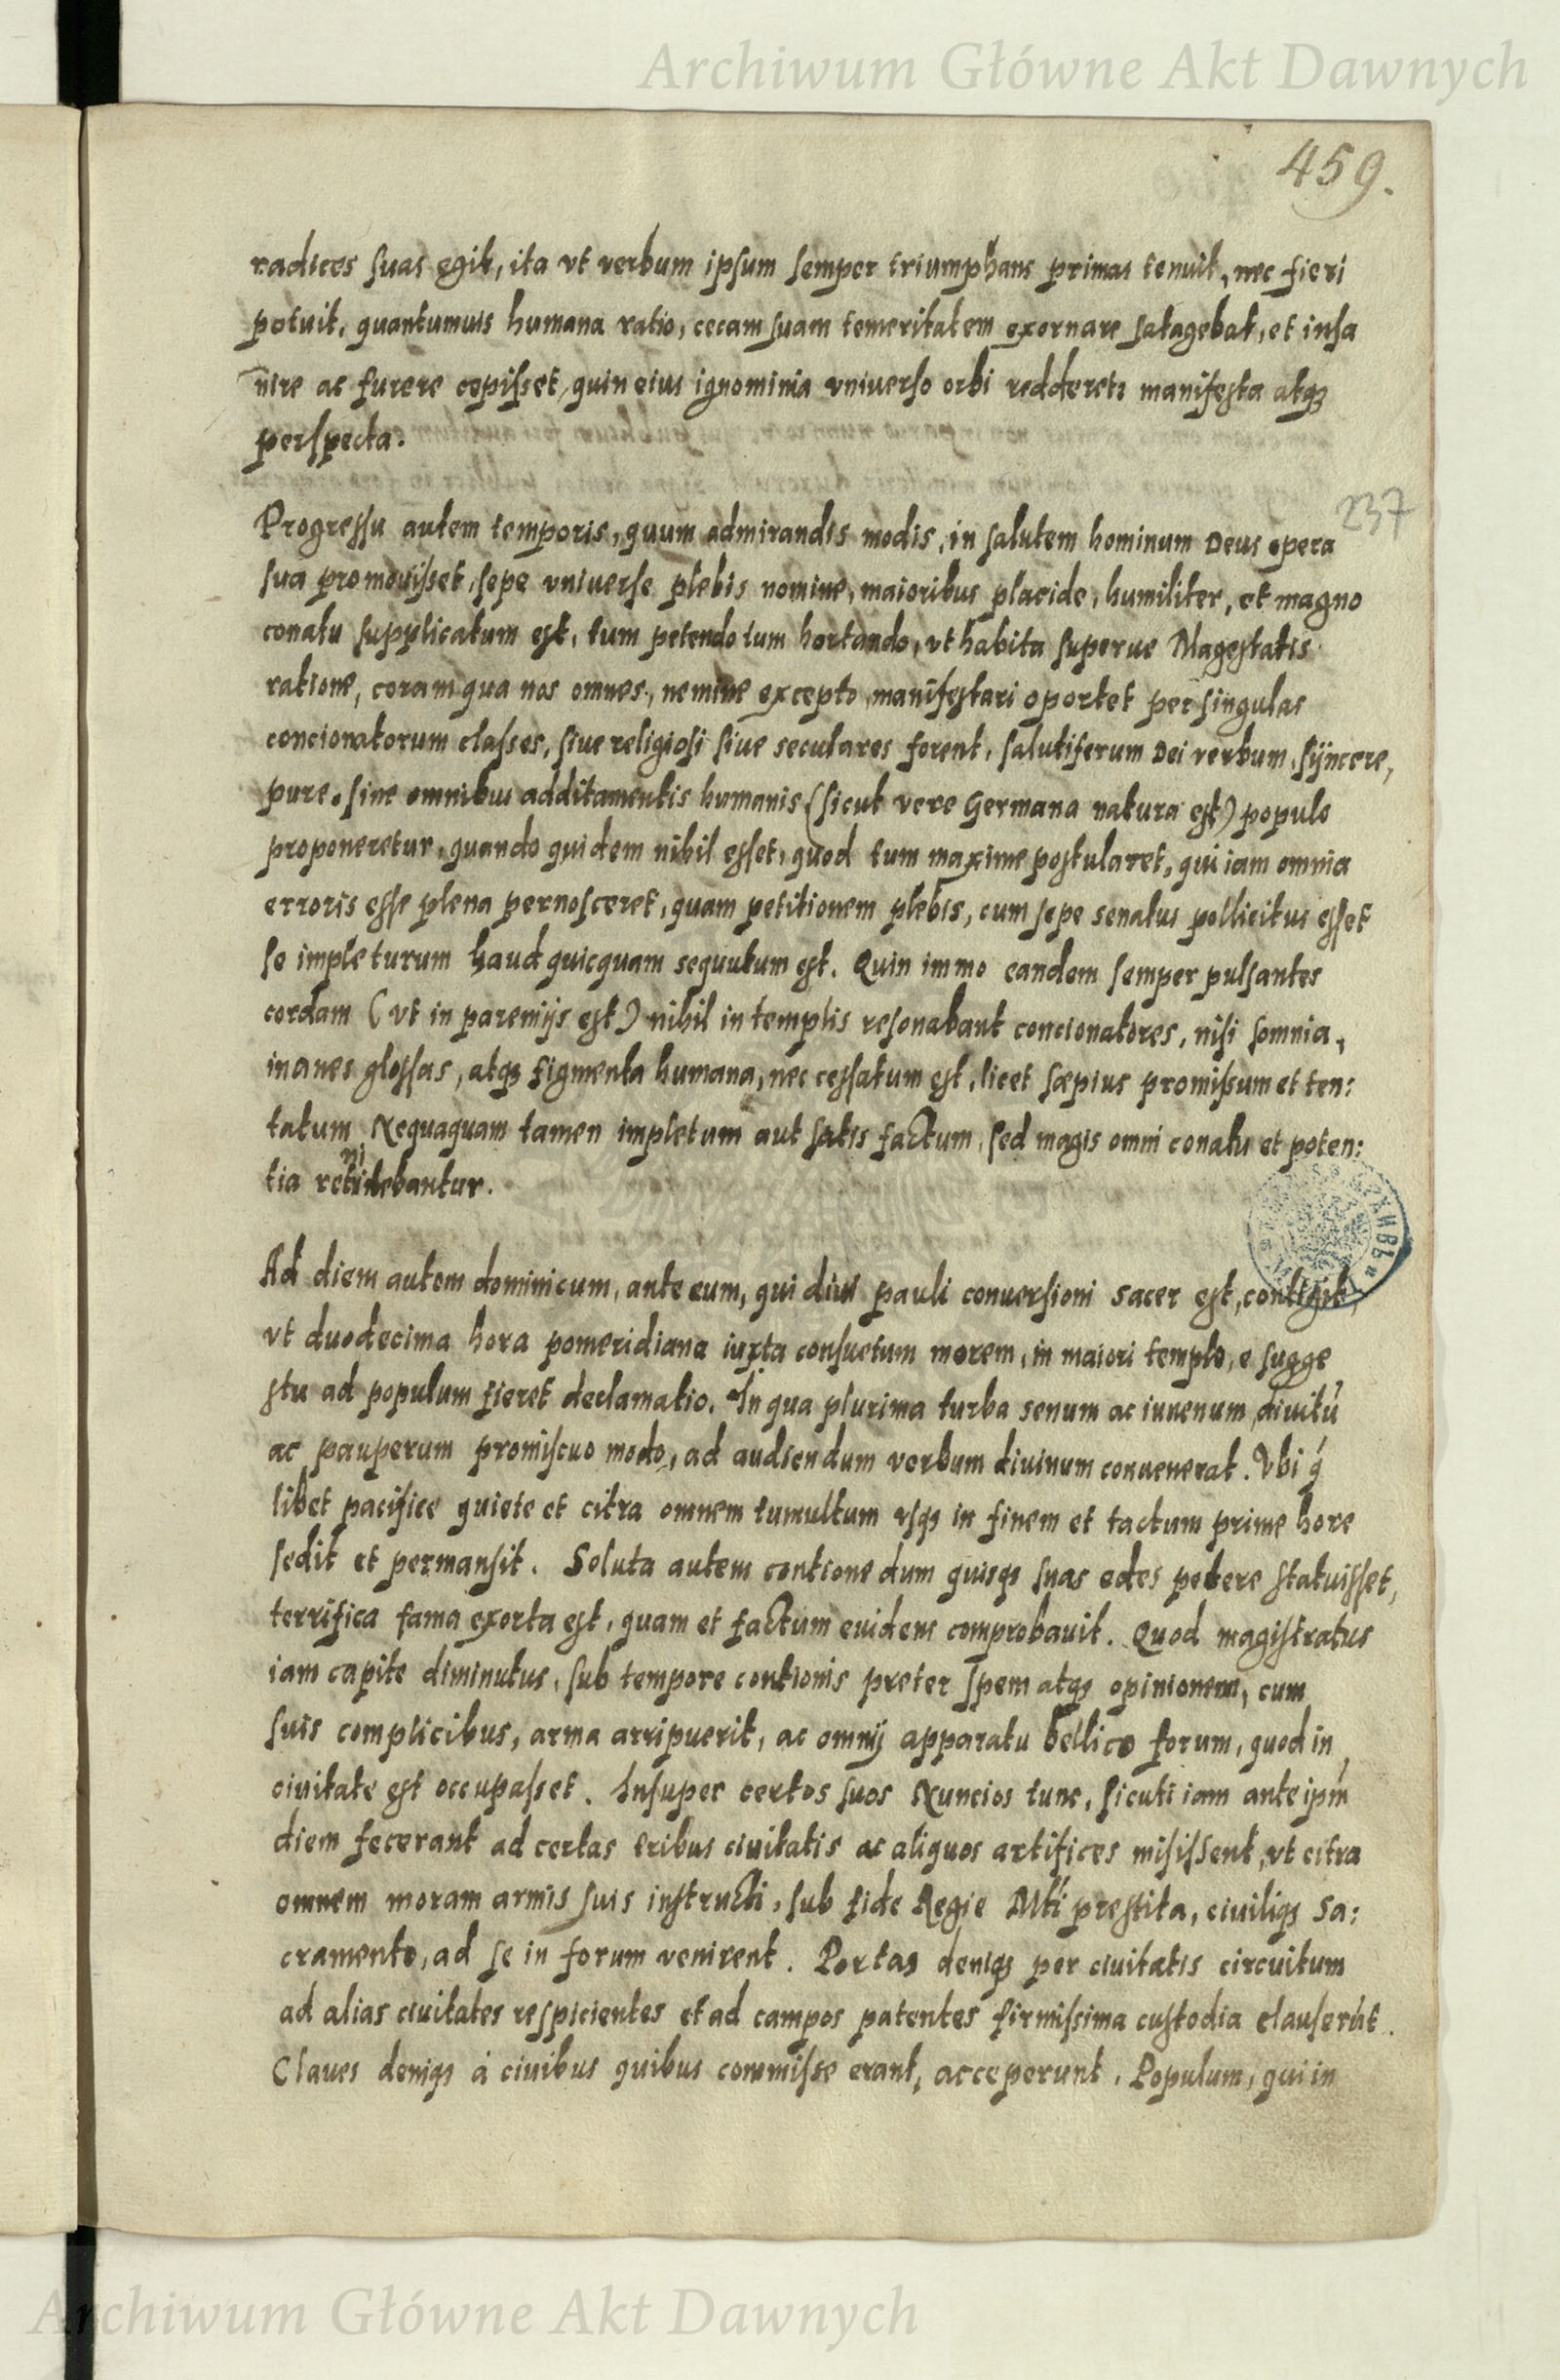 Archiwum Główne Akt Dawnych
459.
radices suas egit, ita vt verbum ipsum semper triumphans primas tenuit, nec fieri
potuit, quantumuis humana ratio, cecam suam temeritatem exornare satagebat, et insa
nire ac furere cepisset, quin eius ignominia vniuerso orbi redderetr manifesta atqz
perspecta.
237
Progressu autem temporis, quum admirandis modis, in salutem hominum Deus opera
sua promouisset, sepe vniuerse plebis nomine, maioribus placide, humiliter, et magno
conatu supplicatum est, tum petendo tum hortando, vt habita superne Magestatis
ratione, coram qua nos omnes, nemine excepto, manifestari oportet per singulas
concionatorum classes, siue religiosi siue seculares forent, salutiferum Dei verbum, sÿncere,
pure. sine omnibus additamentis humanis (sicut vere Germana natura est) populo
proponeretur, quando quidem nihil esset, quod tum maxime postularet, qui iam omnia
erroris esse plena pernosceret, quam petitionem plebis, cum sepe senatus pollicitus esset
se impleturum haud quicquam sequutum est. Quin immo eandem semper pulsantes
cordam (vt in paremijs est) nihil in templis resonabant concionatores, nisi somnia,
inanes glossas, atqz figmenta humana, nec cessatum est, licet sæpius promissum et ten:
tatum Nequaquam tamen impletum aut satis factum, sed magis omni conatu et poten:
ni
tia retidebantur.
Ad diem autem dominicum, ante eum, qui diui pauli conuersioni sacer est, contigit
vt duodecima hora pomeridiana iuxta consuetum morem, in maiori templo, e sugge
stu ad populum fieret declamatio. In qua plurima turba senum ac iuuenum, diuitū
ac pauperum promiscuo modo, ad audiendum verbum diuinum conuenerat. Vbi q́
libet pacifice quiete et citra omnem tumultum vsqz in finem et tactum prime hore
sedit et permansit. Soluta autem contione dum quisqz suas edes petere statuisset,
terrifica fama exorta est, quam et factum euidens comprobauit. Quod magistratus
iam capite diminutus, sub tempore contionis preter spem atqz opinionem, cum
suis complicibus, arma arripuerit, ac omnij apparatu bellico forum, quod in
ciuitate est occupasset. Insuper certos suos Nuncios tunc, sicuti iam ante ipm̄
diem fecerant ad certas tribus ciuitatis ac aliquos artifices misissent, vt citra
omnem moram armis suis instructi, sub fide Regie Mti prestita, ciuiliqz sa:
cramento, ad se in forum venirent. Portas deniqz per ciuitatis circuitum
ad alias ciuitates respicientes et ad campos patentes firmissima custodia clauserūt.
Claues deniqz à ciuibus quibus commisse erant, acceperunt. Populum, qui in
Archiwum Główne Akt Dawnych